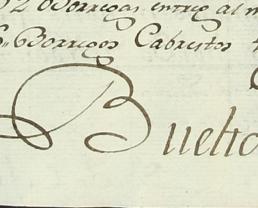 2 Borregas entreg al m
6,, Borregos Cabrestos
Buelto